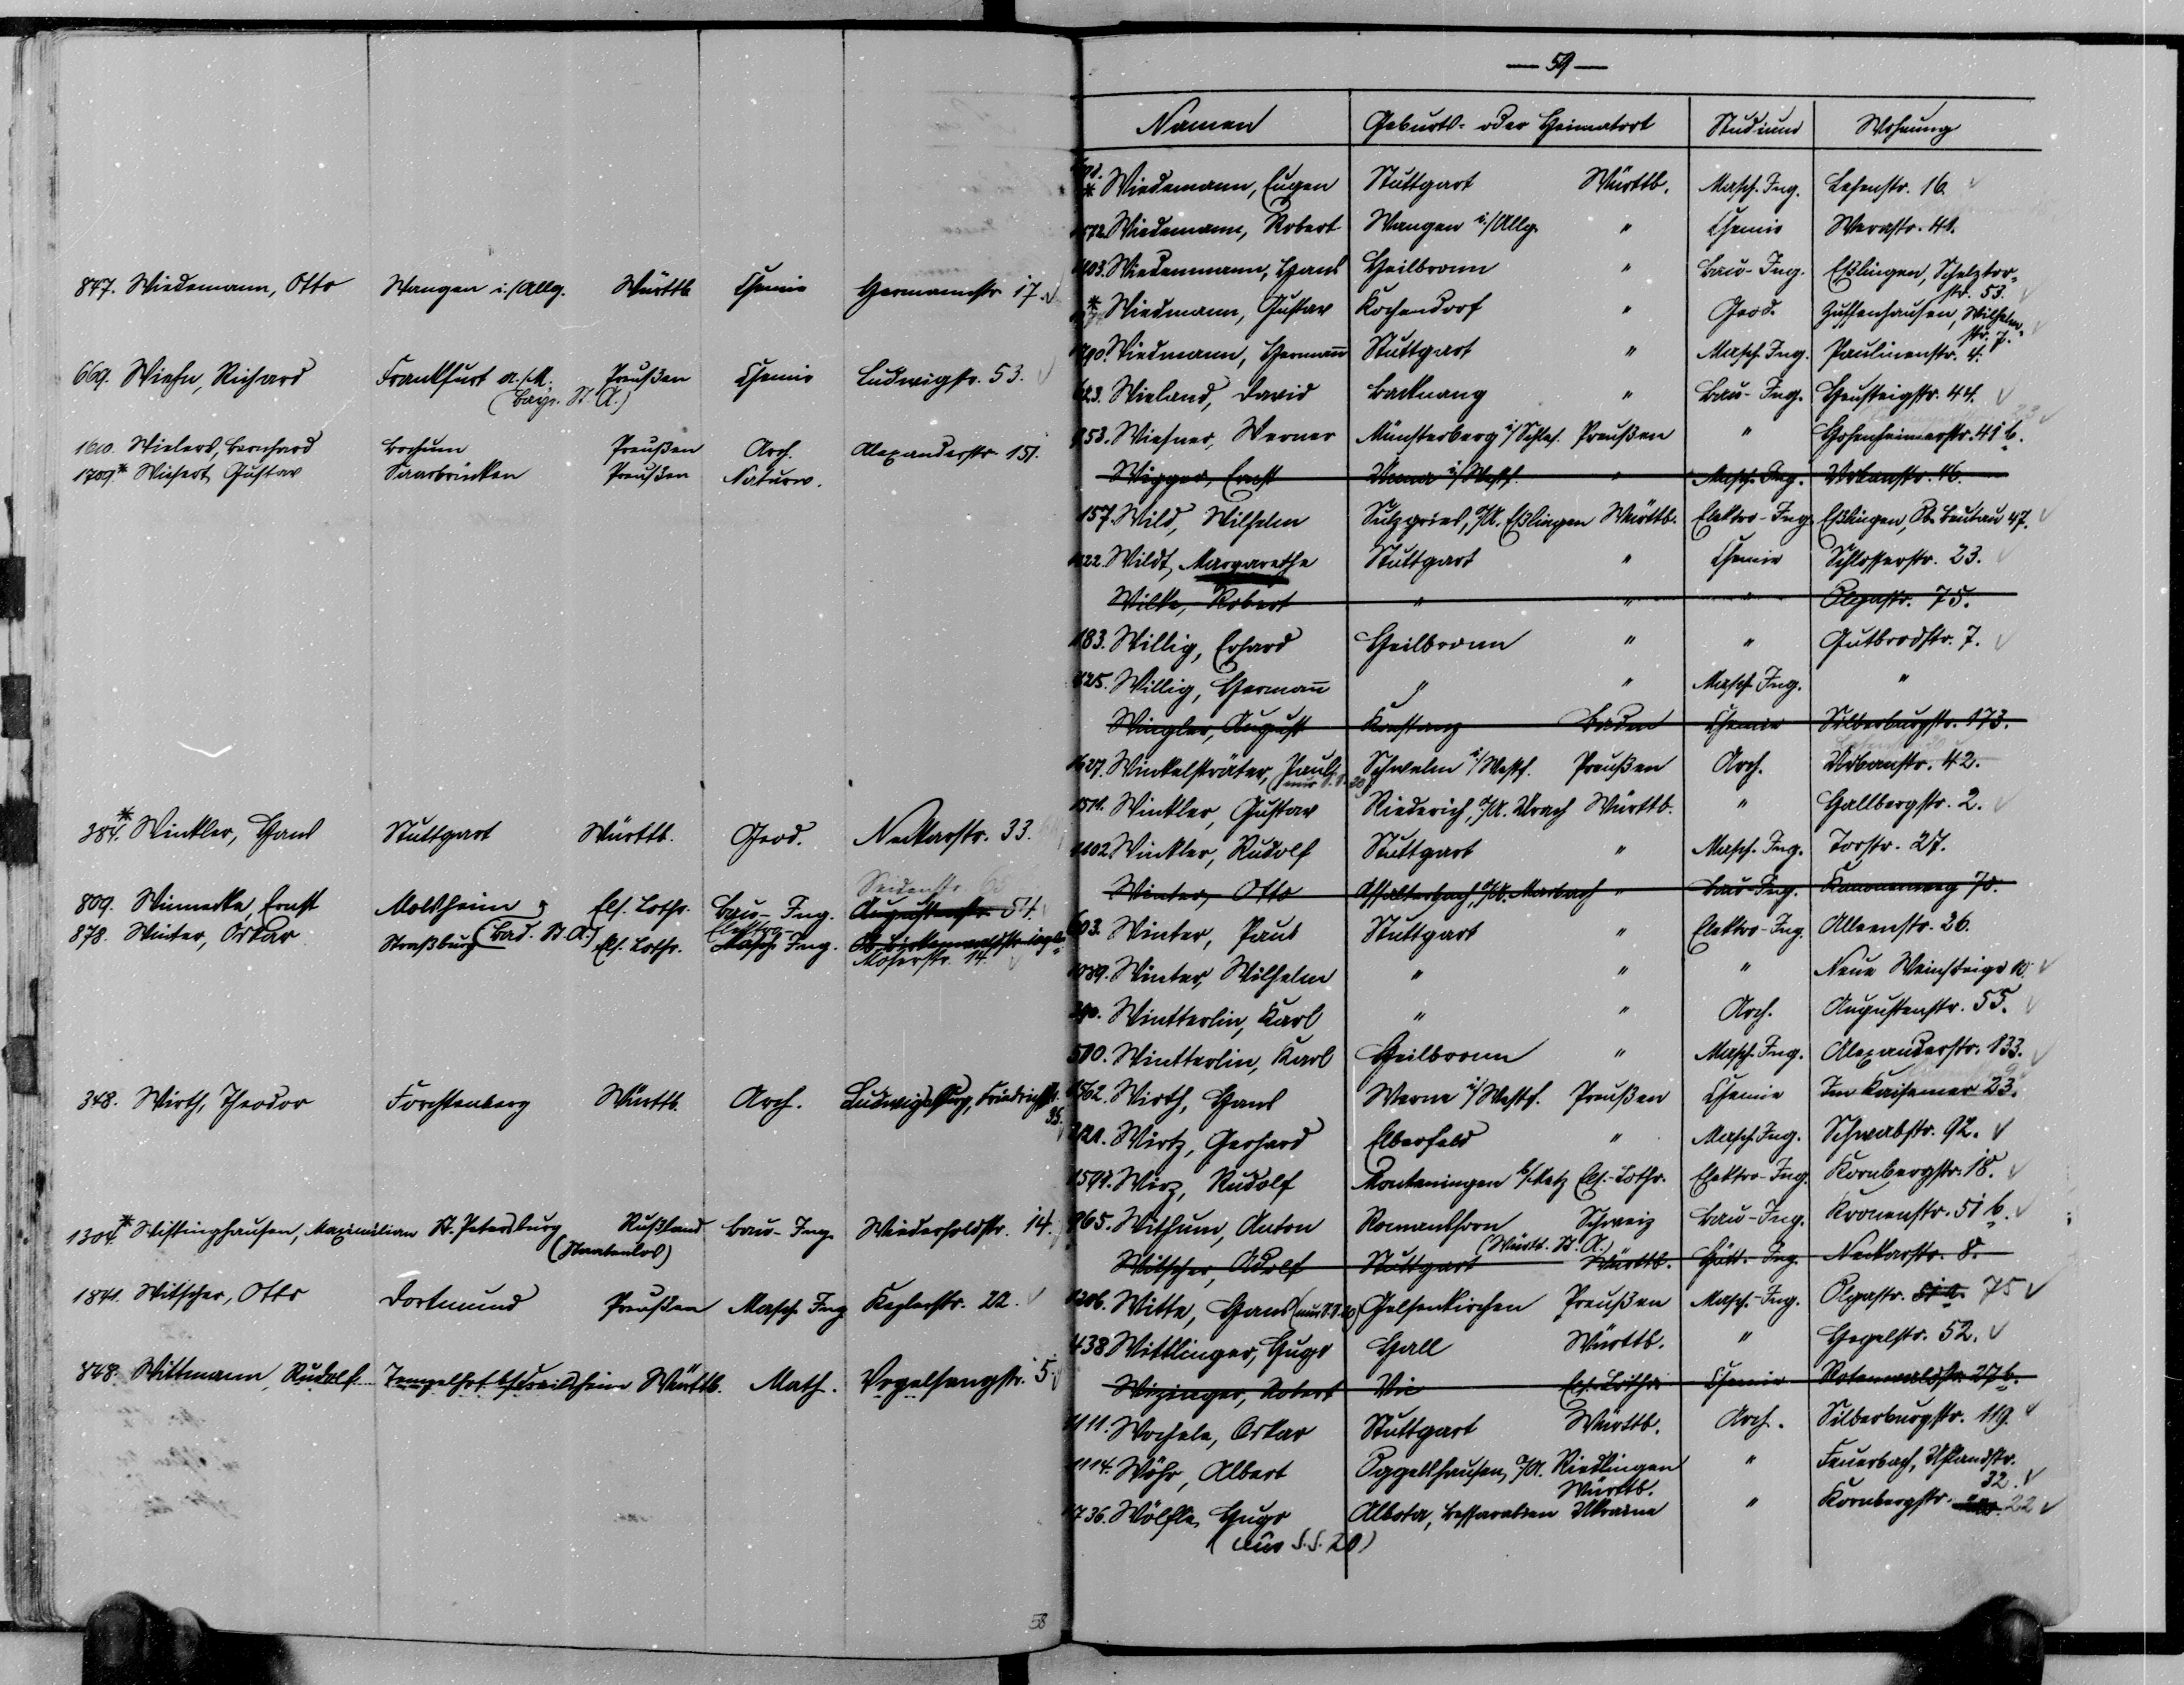 847. Wiedemann, Otto Wangen i./Allg. Württb. Chemie Hermannstr. 17.
669. Wiehn, Richard Frankfurt a./M. Preußen Chemie Ludwigstr. 53.
(Bayr. St. A.)
1610. Wielers, Bernhard Bochum Preußen Arch. Alexanderstr. 151.
1709.* Wiehert, Gustav Saarbrücken Preußen Naturw.
384.* Winkler, Hans Stuttgart Württb. Geod. Neckarstr. 33.
Seidenstr.
809. Winnecke, Ernst Molsheim Els. Lothr. Bau-Ing. Augustenstr. 54.
(Bad. St. A.) Elektro-
878. Winter, Oskar Straßburg Els. Lothr. Masch. Ing.
Moserstr. 14.
348. Wirth, Theodor Forchtenberg Württb. Arch. Ludwigsburg, Friedrichstr.
35.
1304.* Wistinghausen, Maximilian St. Petersburg Rußland Bau-Ing. Wiederholdstr. 14.
(Staatenlos)
1841. Witscher, Otto Dortmund Preußen Masch. Ing. Keplerstr. 22.
848. Wittmann, Rudolf Tempelhof b/Crailsheim Württb. Math. Vogelsangstr. 5.
58
— 59 —
Namen Geburts- oder Heimatort Studium Wohnung
* Wiedemann, Eugen Stuttgart Württb. Masch. Ing. Lehenstr. 16.
1572. Wiedemann, Robert Wangen i./Allg. " Chemie Werastr. 41.
Wiedenmann, Hans Heilbronn " Bau-Ing. Eßlingen, Schelztor-
str. 53.
* Wiedmann, Gustav Kochendorf " Geod. Zuffenhausen, Wilhelm-
str. 7.
1790. Wiedmann, Hermann Stuttgart " Masch. Ing. Paulinenstr. 4.
623. Wieland, David Backnang " Bau-Ing. Heusteigstr. 44.
853. Wiesner, Werner Münsterberg i/Schles. Preußen " Hohenheimerstr. 41 b.
Wigger, Ernst Unna i/Westf. " Masch. Ing. Urbanstr. 46.
157. Wild, Wilhelm Sulzgries, O/A. Eßlingen Württb. Elektro-Ing. Eßlingen, Ob. Beutau 47.
1122. Wildt, Margarethe Stuttgart " Chemie Schlosserstr. 23.
Wilke, Robert " " " Olgastr. 75.
183. Willig, Erhard Heilbronn " " Gutbrodstr. 7.
625. Willig, Hermann " " Masch. Ing. "
Wingler, August Konstanz Baden Chemie Silberburgstr. 173.
1627. Winkelsträter, Paul Schwelm i/Westf. Preußen Arch. Urbanstr. 42.
(nur S.S. 20)
1511. Winkler, Gustav Riederich, O/A. Urach Württb. " Hallbergstr. 2.
1102. Winkler, Rudolf Stuttgart " Masch. Ing. Torstr. 27.
Winter, Otto Affalterbach, O/A. Marbach " Bau-Ing. Kanonenweg 70.
603. Winter, Paul Stuttgart " Elektro-Ing. Alleenstr. 26.
1089. Winter, Wilhelm " " " Neue Weinsteige 10.
390. Wintterlin, Karl " " Arch. Augustenstr. 55.
500. Wintterlin, Karl Heilbronn " Masch. Ing. Alexanderstr. 133.
1562. Wirth, Hans Werne i/Westf. Preußen Chemie Im Kaisemer 23.
Wirtz, Gerhard Elberfeld " Masch. Ing. Schwabstr. 92.
1599. Wirz, Rudolf Monteningen b/Metz Els.-Lothr. Elektro-Ing. Kornbergstr. 18.
965. Withum, Anton Romanshorn Schweiz Bau-Ing. Kronenstr. 51 b.
(Württ. St. A.)
Witscher, Adolf Stuttgart Württb. Hütt.-Ing. Neckarstr. 8.
1206. Witte, Hans (nur S.S. 20) Gelsenkirchen Preußen Masch.-Ing. Olgastr. 51 a. 75
438 Wittlinger, Hugo Hall Württb. " Hegelstr. 52.
Wizinger, Robert Vic Els. Lothr. Chemie Rotenwaldstr. 27 b.
1111. Wochele, Oskar Stuttgart Württb. Arch. Silberburgstr. 119.
1114. Wöhr, Albert Oggelshausen, O/A. Riedlingen " Feuerbach, Uhlandstr.
Württb. 32.
1736. Wölfle, Hugo Albota, Bessarabien Ukraine " Kornbergstr. 22
(aus S.S. 20)